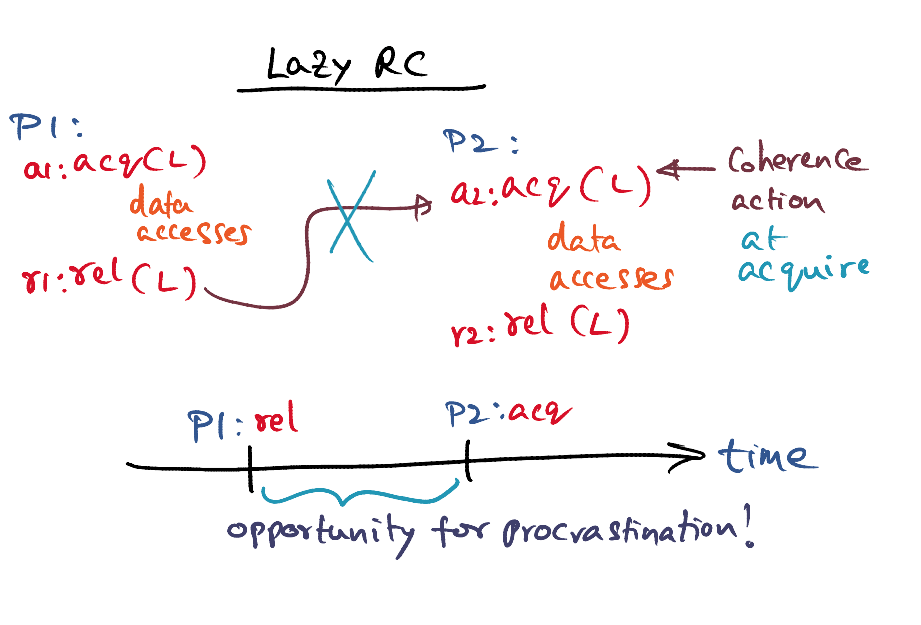 Lazy RC
P1:
a1:acq(L)
data
accesses
r1:rel(L)
P2:
a2:acq(L)
data
accesses
r2:rel(L)
Coherence
action
at
acquire
P1:rel
P2:acq
time
opportunity for procrastination!